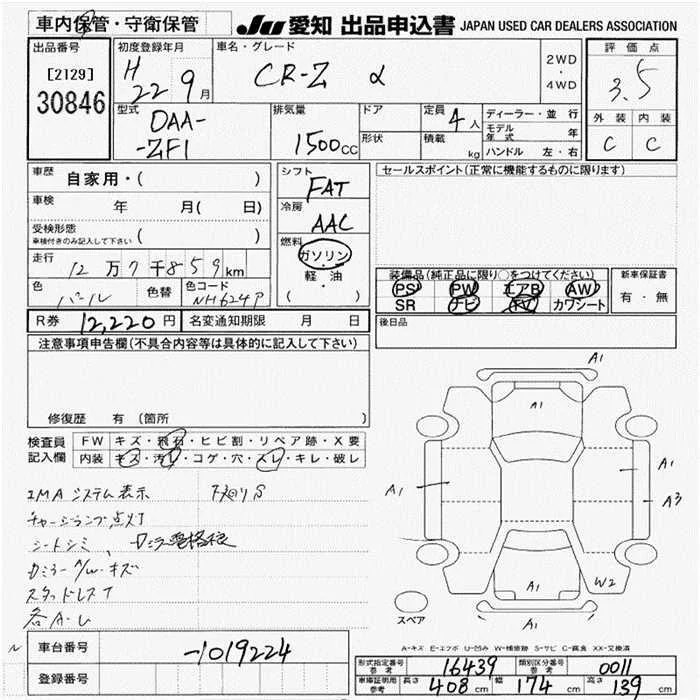 車内保管・守衛保管
JU 愛知 出品申込書 JAPAN USED CAR DEALERS ASSOCIATION
出品番号
[2129]
30846
初度登録年月
H 22 9月
車名・グレード
CR-Z α
2WD
・
4WD
評価点
3.5
外装 内装
C C
型式
DAA-
-ZF1
排気量
1500cc
ドア
形状
定員 4人
積載 kg
ディーラー・並行
モデル年式 年
ハンドル 左・右
車歴 自家用・( )
車検 年 月( 日)
受検形態
車検付きのみ記入して下さい ( )
走行 12万7千859km
色 パール 色替 色コード NH624P
シフト
FAT
冷房
AAC
燃料
ガソリン
・
軽・油
( )
セールスポイント(正常に機能するものに限ります)
装備品(純正品に限り○をつけてください)
PS PW エアB AW
SR ナビ TV カワシート
新車保証書
有・無
R券 12,220円 名変通知期限 月 日
後日品
注意事項申告欄(不具合内容等は具体的に記入して下さい)
修復歴 有(箇所 )
検査員記入欄
FW キズ・飛石・ヒビ割・リペア跡・X要
内装 キズ・汚レ・コゲ・穴・スレ・キレ・破レ
IMA システム表示 下廻りS
チャージランプ点灯
シートシミ、
Dミラー A/W.キズ
スタッドレス T
各A-U
A1
A1
A1
A1
A1
A3
W2
A1
A1
スペア
A-キズ E-エクボ U-凹み W-補修跡 S-サビ C-腐食 XX-交換済
車台番号 -1019224
登録番号
型式指定番号 参考 16439 類別区分番号 参考 0011
車庫証明用 参考 長さ 408cm 幅 174cm 高さ 139cm